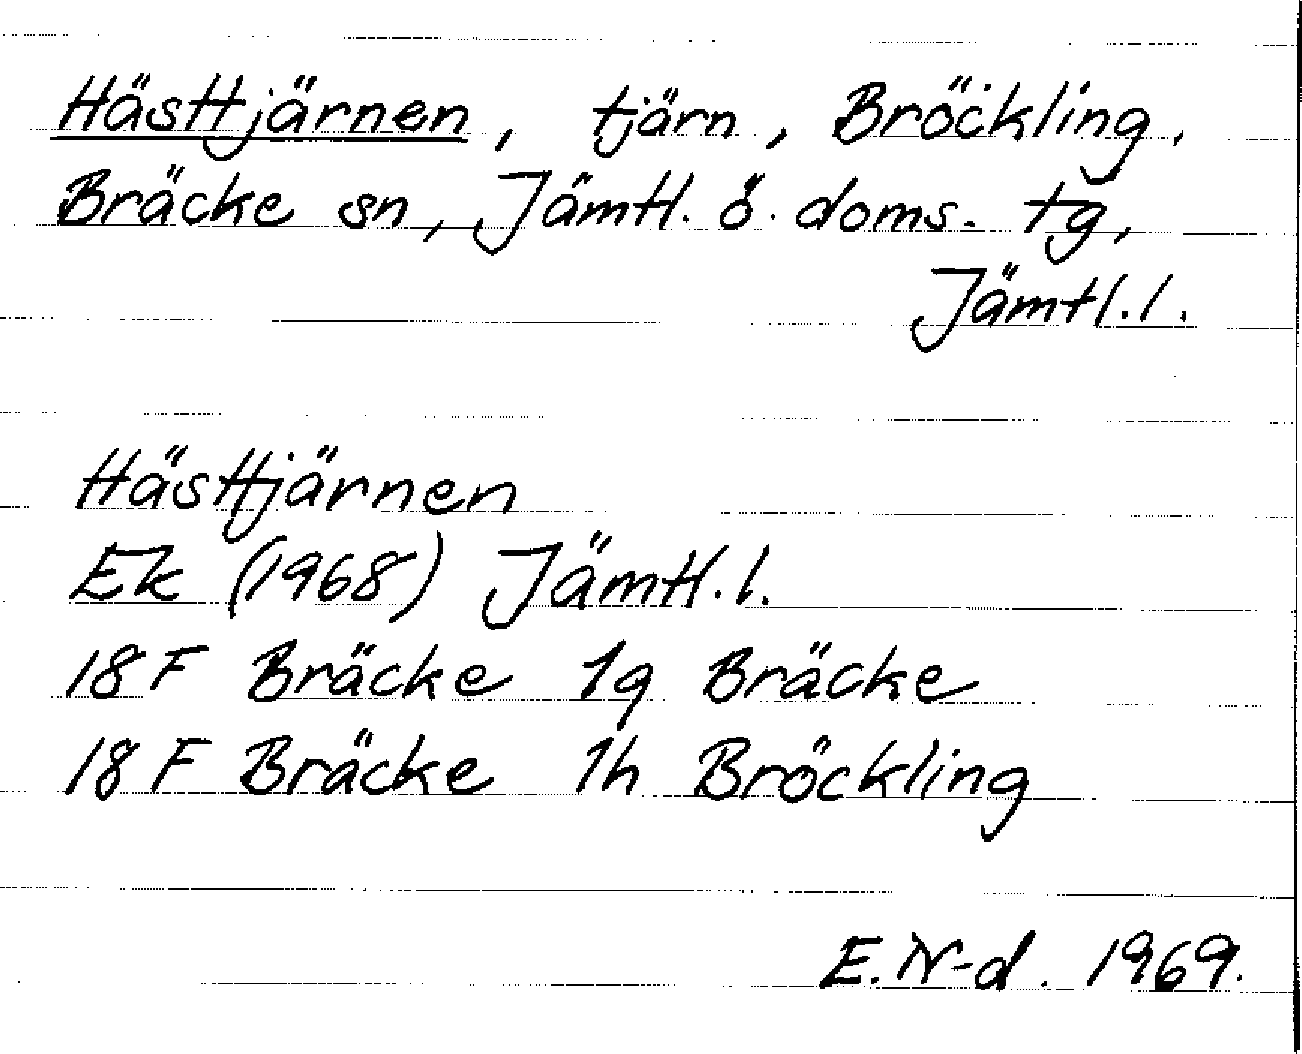 Hästtjärnen, tjärn, Bröckling,
Bräcke sn, Jämtl. ö. doms. tg,
Jämtl.l.
Hästtjärnen
Ek (1968) Jämtl.l.
18 F Bräcke 1g Bräcke
18 F Bräcke 1h Bröckling
E.N-d. 1969.